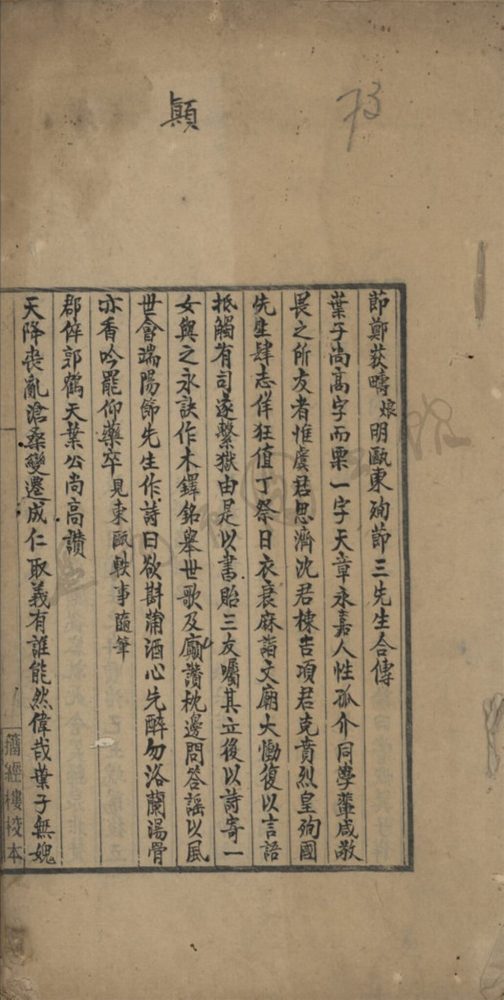 顛
73
節鄭荻疇烺明甌東殉節三先生合傳
葉子尚高字而栗一字天章永嘉人性孤介同學輩咸敬
畏之所友者惟虞君思濟沈君棟吉項君克賁烈皇殉國
先生肆志佯狂值丁祭日衣衰麻詣文廟大慟復以言語
抵觸有司遂繫獄由是以書貽三友囑其立後以詩寄一
女與之永訣作木鐸銘舉世歌及廟讚枕邊問答謠以風
世會端陽節先生作詩曰欲斟蒲酒心先醉勿浴蘭湯骨
亦香吟罷仰藥卒見東甌軼事隨筆
郡倅郭鶴天葉公尚高讚
天降喪亂滄桑變遷成仁取義有誰能然偉哉葉子無媿
籀經樓校本